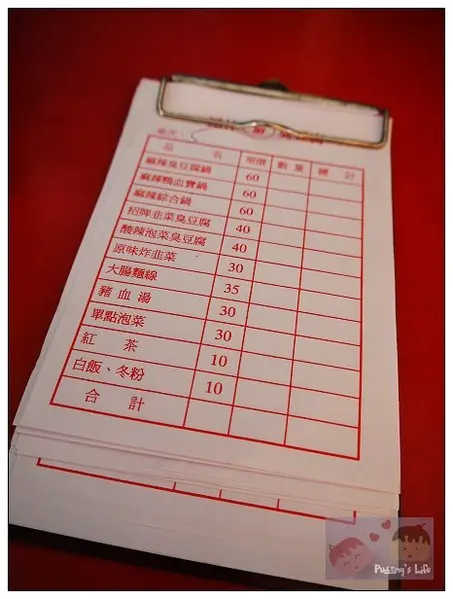 品 名 單價 數量 總計
麻辣臭豆腐鍋 60
麻辣鴨血寶鍋 60
麻辣綜合鍋 60
招牌韭菜臭豆腐 40
酸辣泡菜臭豆腐 40
原味炸韭菜 30
大腸麵線 35
豬血湯 30
單點泡菜 30
紅 茶 10
白飯、冬粉 10
合 計
Pudding's Life